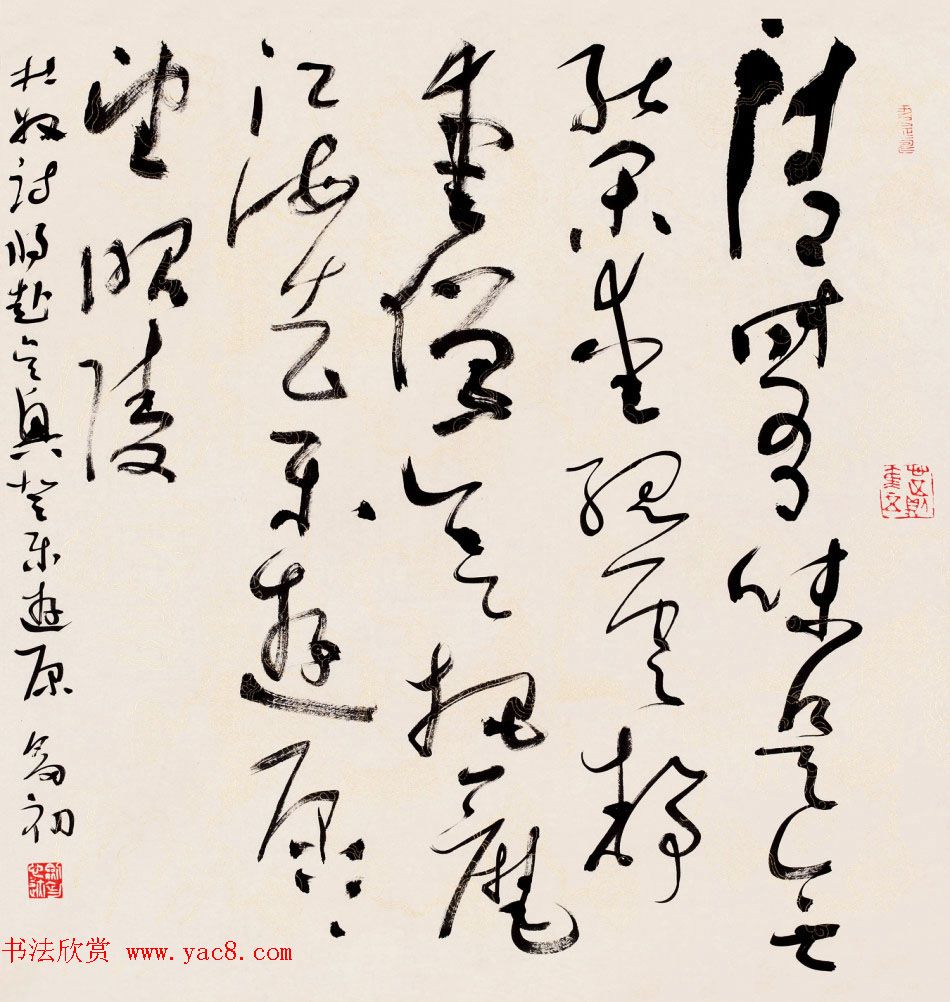 清時有味是無
能閑愛孤雲静
愛僧欲把一麾
江海去樂遊原上
望昭陵
杜牧詩將赴吳興登樂遊原 初
书法欣赏 www.yac8.com